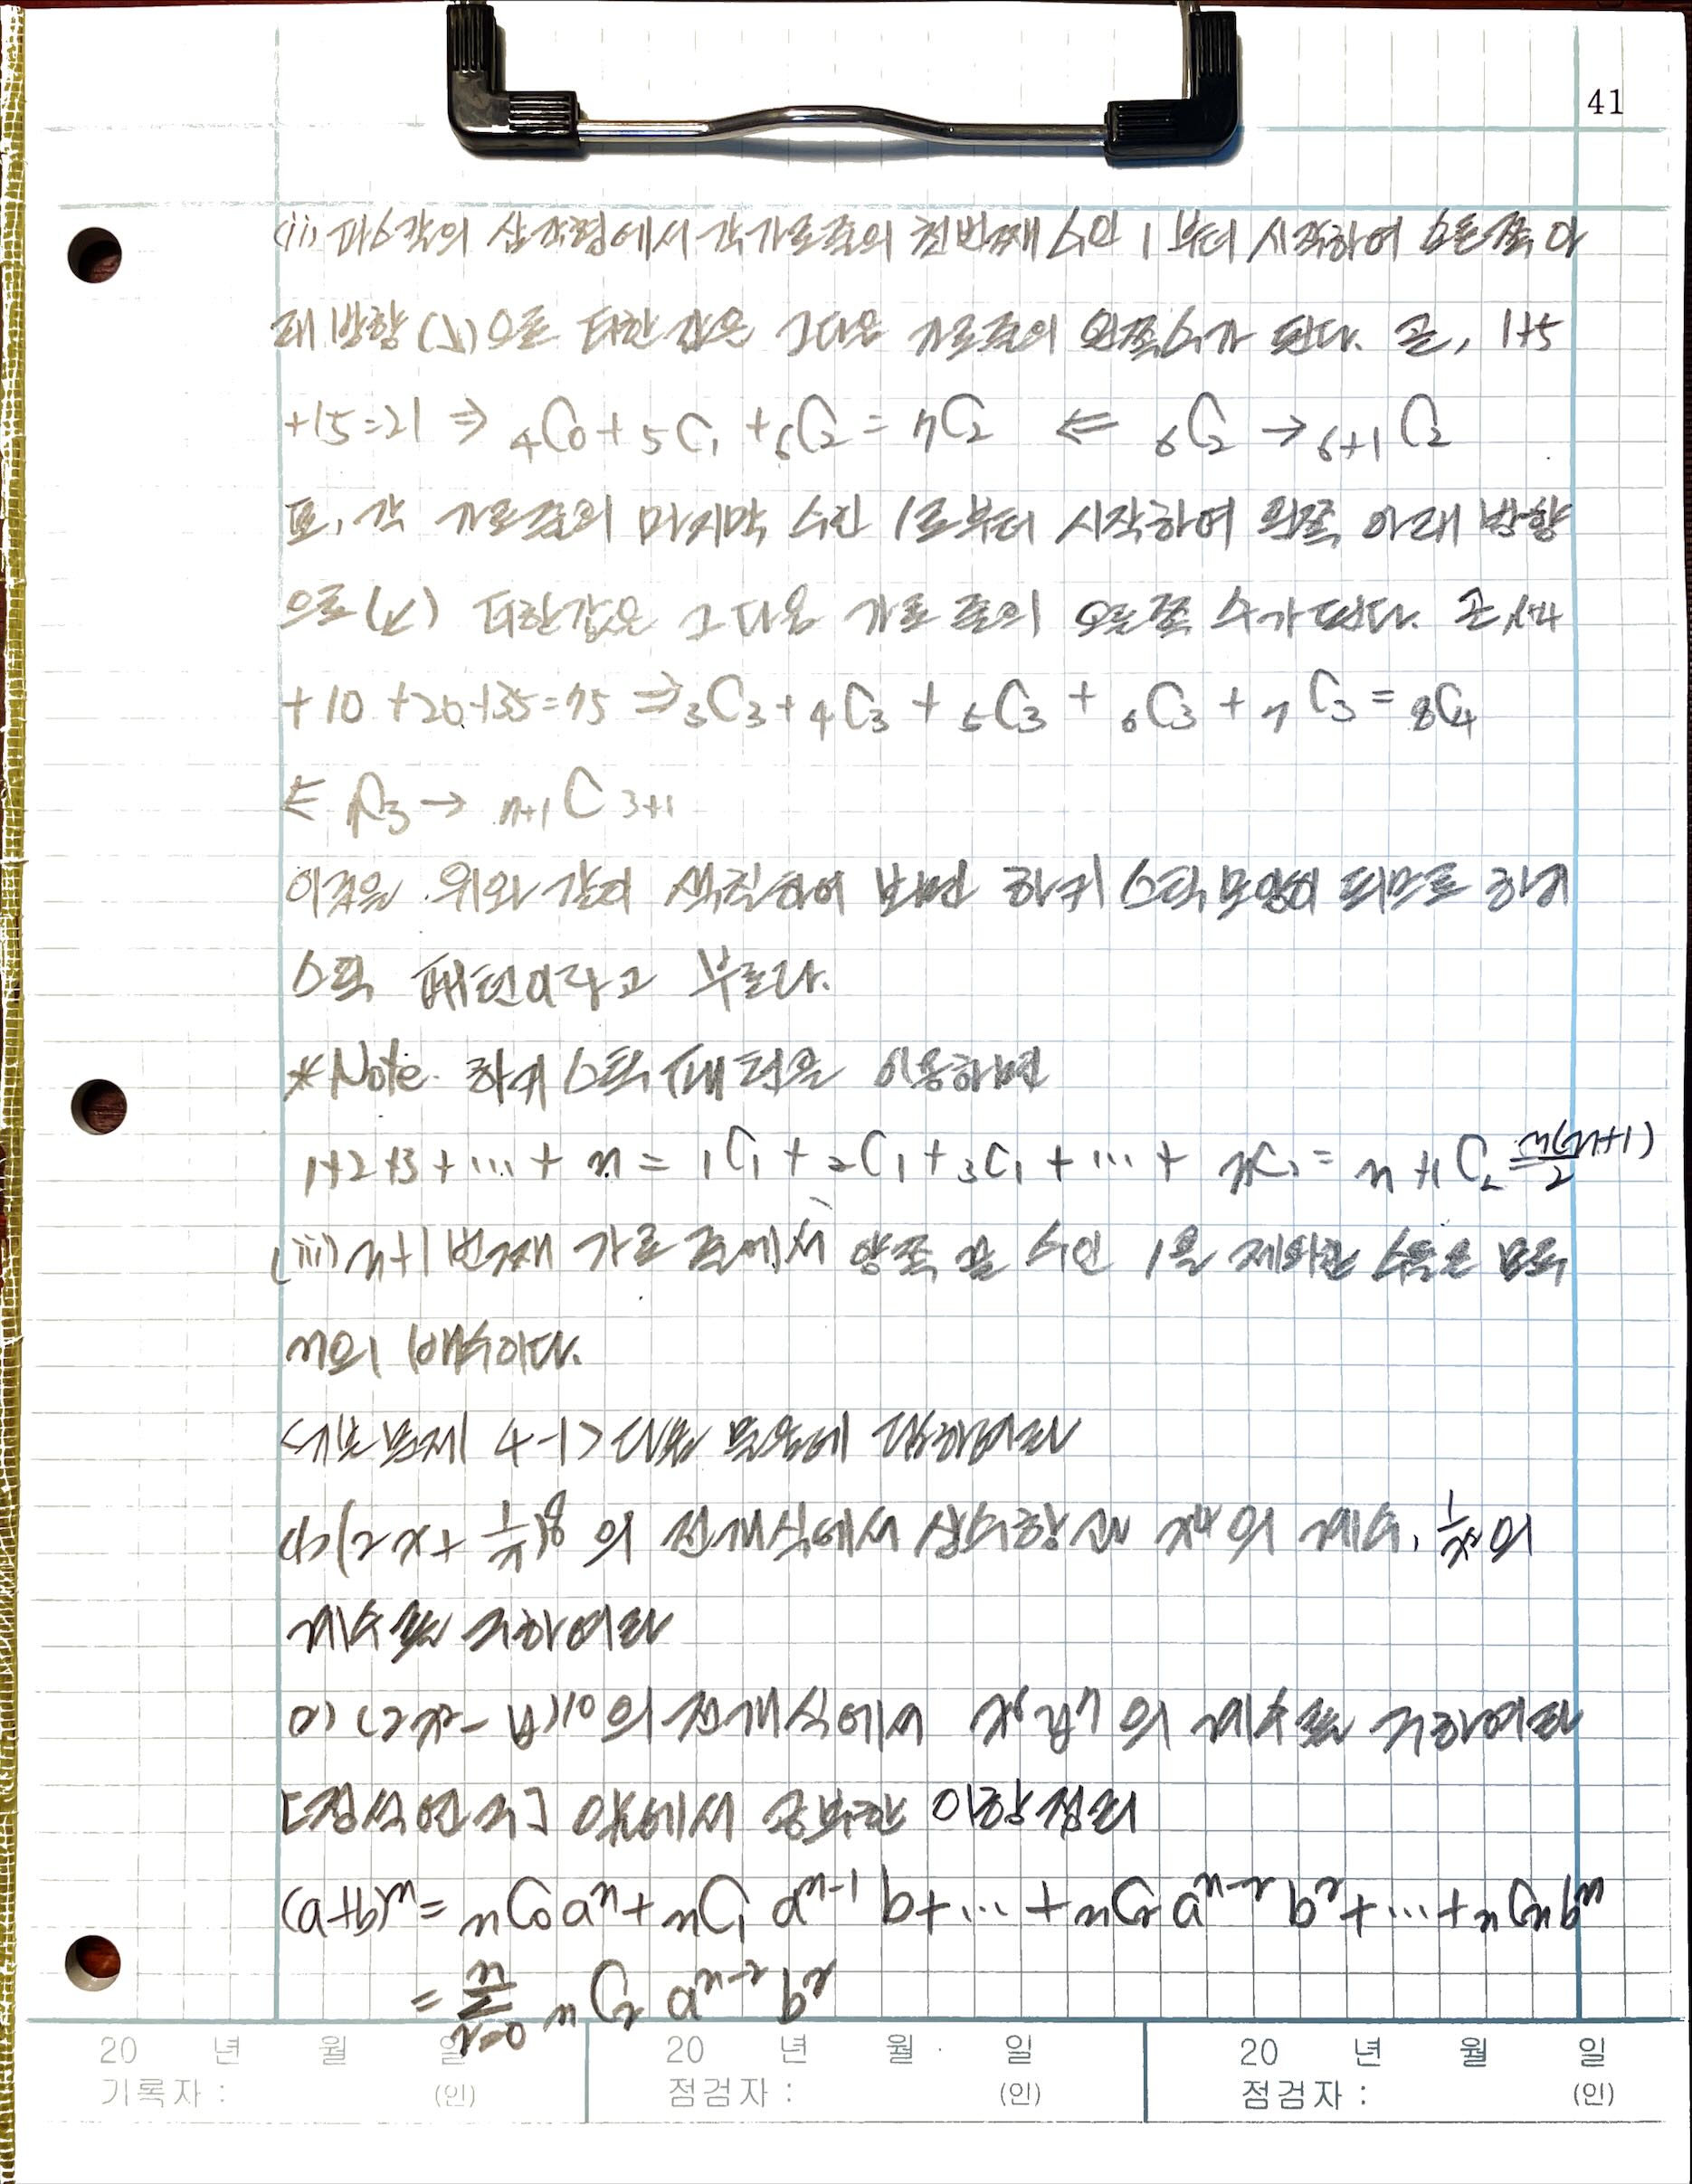 41
(ii) 파스칼의 삼각형에서 각 가로줄의 첫번째 수인 1부터 시작하여 오른쪽 아
래 방향(↘)으로 더한 값은 그다음 가로줄의 왼쪽수가 된다. 곧, 1+5
+15=21 ⇒ ₄C₀ + ₅C₁ + ₆C₂ = ₇C₂ ⇐ ₆C₂ → ₆₊₁C₂
또, 각 가로줄의 마지막 수인 1로부터 시작하여 왼쪽 아래 방향
으로(↙) 더한값은 그 다음 가로 줄의 오른쪽 수가 된다. 곧, 1+4
+10+20+35=75 ⇒ ₃C₃ + ₄C₃ + ₅C₃ + ₆C₃ + ₇C₃ = ₈C₄
⇐ C₃ → ₇₊₁C₃₊₁
이것을 위와 같이 색칠하여 보면 하키 스틱 모양이 되므로 하키
스틱 패턴이라고 부른다.
*Note. 하키 스틱 패턴을 이용하면
1+2+3+...+n = ₁C₁ + ₂C₁ + ₃C₁ + ... + ₙC₁ = ₙ₊₁C₂ = n(n+1)/2
(iii) n+1번째 가로 줄에서 양쪽 끝 수인 1을 제외한 수들은 모두
n의 배수이다.
<기본 문제 4-1> 다음 물음에 답하여라
(1) (2x + 1/x)⁸의 전개식에서 상수항과 x⁴의 계수, 의
계수를 구하여라
(2) (2x²-y)¹⁰의 전개식에서 x⁶y⁷의 계수를 구하여라
[정석연구] 앞에서 공부한 이항정리
(a+b)ⁿ = ₙC₀aⁿ + ₙC₁aⁿ⁻¹b + ... + ₙCᵣaⁿ⁻ʳbʳ + ... + ₙCₙbⁿ
= Σⁿᵣ₌₀ ₙCᵣ aⁿ⁻ʳ bʳ
20 년 월 일 20 년 월 일 20 년 월 일
기록자 : (인) 점검자 : (인) 점검자 : (인)